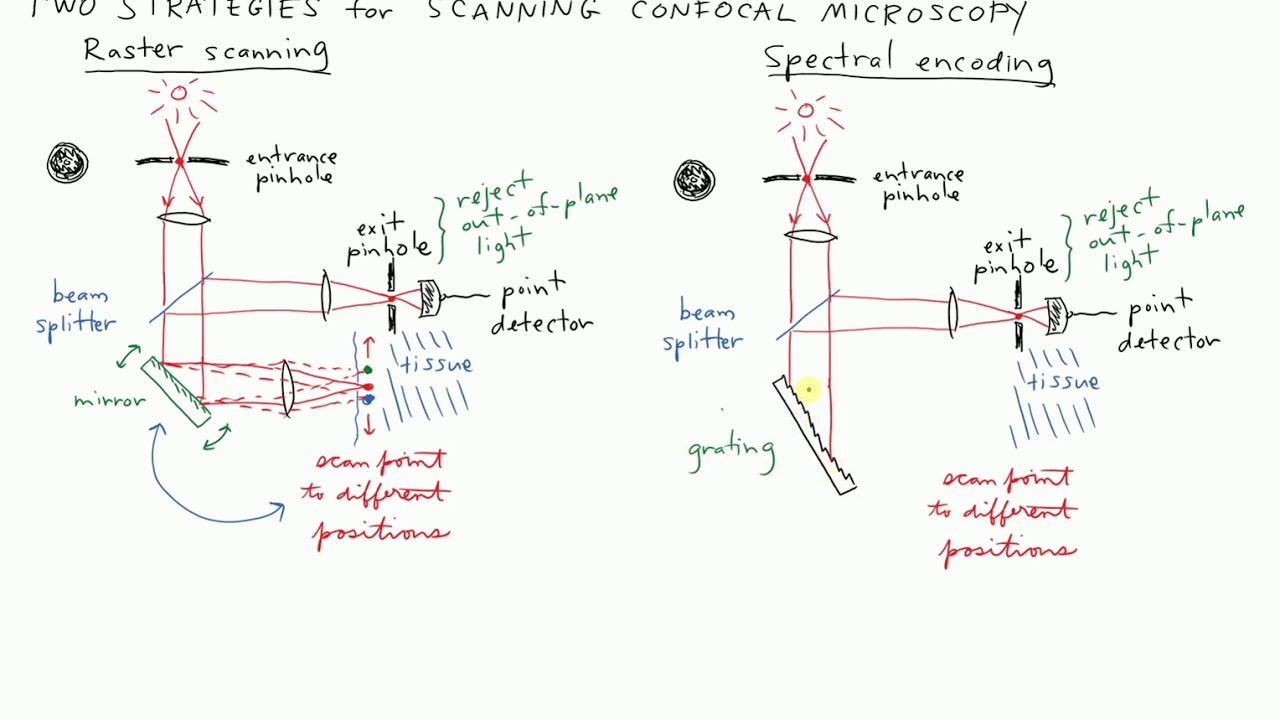 TWO STRATEGIES for SCANNING CONFOCAL MICROSCOPY
Raster scanning
entrance
pinhole
exit
pinhole
reject
out-of-plane
light
beam
splitter
point
detector
tissue
mirror
scan point
to different
positions
Spectral encoding
entrance
pinhole
exit
pinhole
reject
out-of-plane
light
beam
splitter
point
detector
tissue
grating
scan point
to different
positions